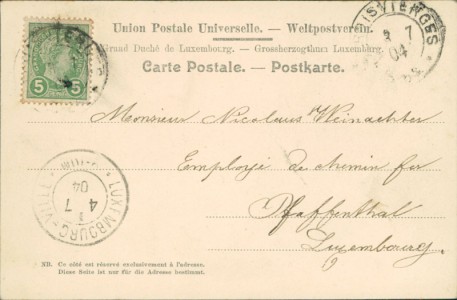 Union Postale Universelle. — Weltpostverein.
Grand Duché de Luxembourg. — Grossherzogthum Luxemburg.
Carte Postale. — Postkarte.
5 5
7
04
Monsieur Nicolaus Weinachter
Employé de chemin fer
Pfaffenthal
Luxembourg
LUXEMBOURG-VILLE
4 7
04
NB. Ce côté est réservé exclusivement à l'adresse.
Diese Seite ist nur für die Adresse bestimmt.